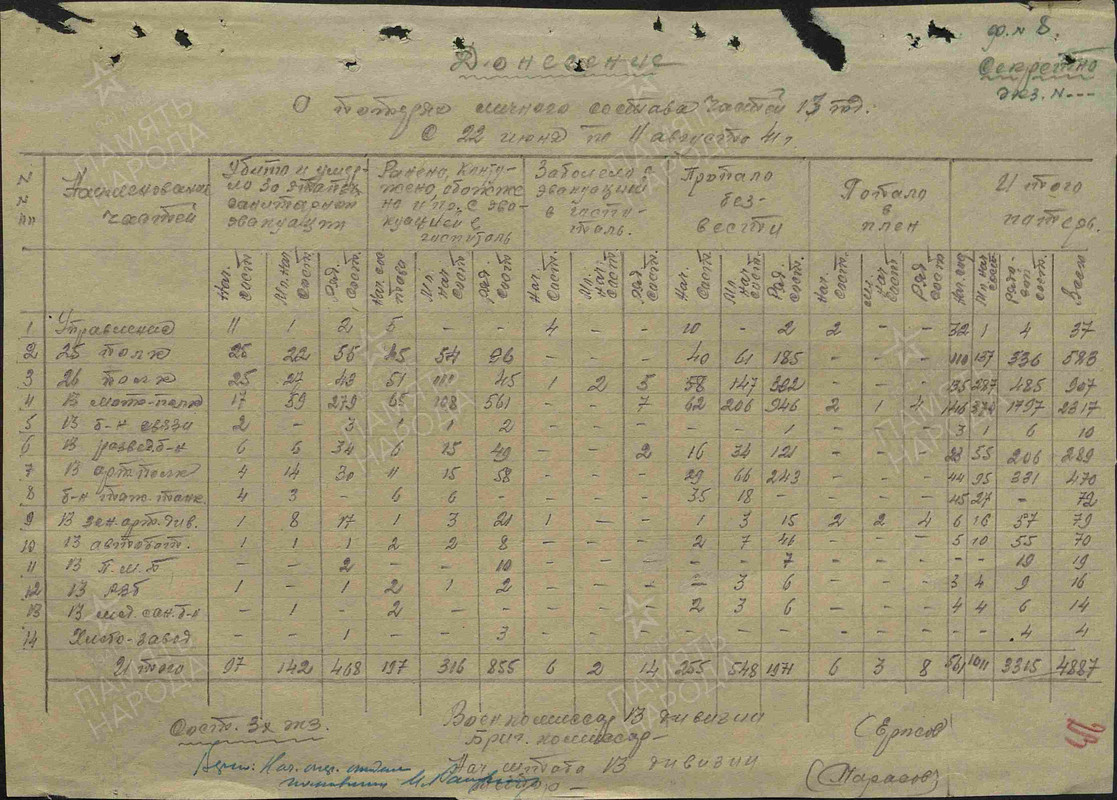 ф. № 8.
Секретно
экз. № ---
Донесение
О потерях личного состава частей 13 тд.
С 22 июня по 11 августа 41 г.
№ № пп | Наименование частей | Убито и умерло во этапах санитарной эвакуации | Ранено, контужено, обожжено и пр. с эвакуацией в госпиталь | Заболело с эвакуацией в госпиталь. | Пропало без-вести | Попало в плен | Итого потерь.
Нач. Сост. | Мл. Нач. Сост. | Ряд. Сост. | Нач. состава | Мл. Нач. Сост. | Ряд. Сост. | Нач. Сост. | Мл. Нач. Сост. | Ряд. сост. | Нач. Сост. | Мл. Нач. Сост. | Ряд. Сост. | Нач. Сост. | Мл. Нач. Сост. | Ряд. Сост. | Нач. сос. | Мл. Нач. сост. | Рядо- сост. | Всего
1 Управление 11 1 2 5 - - 4 - - 10 - 2 2 - - 32 1 4 37
2 25 полк 26 22 55 45 54 96 - - - 40 61 185 - - - 110 137 336 583
3 26 полк 25 27 43 51 45 1 2 5 58 147 392 - - - 135 287 485 907
4 13 мото-полк 17 59 279 65 108 561 - - 7 62 206 946 2 1 4 146 374 1797 2317
5 13 б-н связи 2 - 3 1 1 2 - - - - - 1 - - - 3 1 6 10
6 13 развед.б-н 6 6 34 6 15 49 - - 2 16 34 121 - - - 28 55 206 289
7 13 арт.полк 4 14 30 11 15 58 - - - 29 66 243 - - - 44 95 331 470
8 б-н танк. 4 3 - 6 6 - - - - 35 18 - - - - 45 27 - 72
9 13 зен.арт.див. 1 8 17 1 3 21 1 - - 1 3 15 2 2 4 6 16 57 79
10 13 автобат. 1 1 1 2 2 8 - - - 2 7 46 - - - 5 10 55 70
11 13 П.М.Б - - 2 - - 10 - - - - - 7 - - - - - 19 19
12 13 РВБ 1 - 1 2 1 2 - - - - 3 6 - - - 3 4 9 16
13 13 мед.сан.б-н - 1 - 2 - - - - - 2 3 6 - - - 4 4 6 14
14 Хлебо-завод - - 1 - - 3 - - - - - - - - - - - 4 4
Итого 97 142 468 197 316 855 6 2 14 255 548 1971 6 3 8 561 1011 3315 4887
Сост. 3х экз.
Военкомиссар 13 дивизии
Бриг. комиссар -
Нач. штаба 13 дивизии